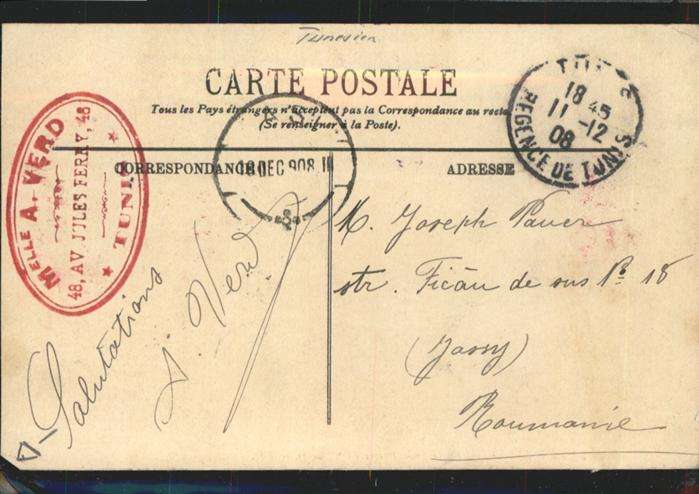 Tunesien
CARTE POSTALE
Tous les Pays étrangers n'acceptent pas la Correspondance au recto
(Se renseigner à la Poste).
CORRESPONDANCE
ADRESSE
MELLE A. VERD
48, AV JULES FERRY, 48
TUNIS
DEC 908
18 45
11 -12
08
REGENCE DE TUNIS
Salutations
A. Verd
M. Joseph Paver
str. Ficău de sus No 18
(Jassy)
Roumanie